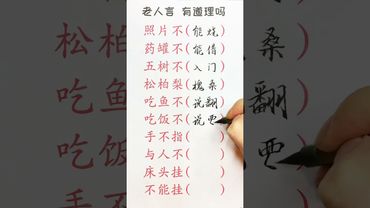 老人言 有道理吗
照片不(能烧)
药罐不(能借)
五树不(入门)
松柏梨(槐桑)
吃鱼不(说翻)
吃饭不(说要)
手不指( )
与人不( )
床头挂( )
不能挂( )
松柏
桑
吃鱼
翻
吃饭
要